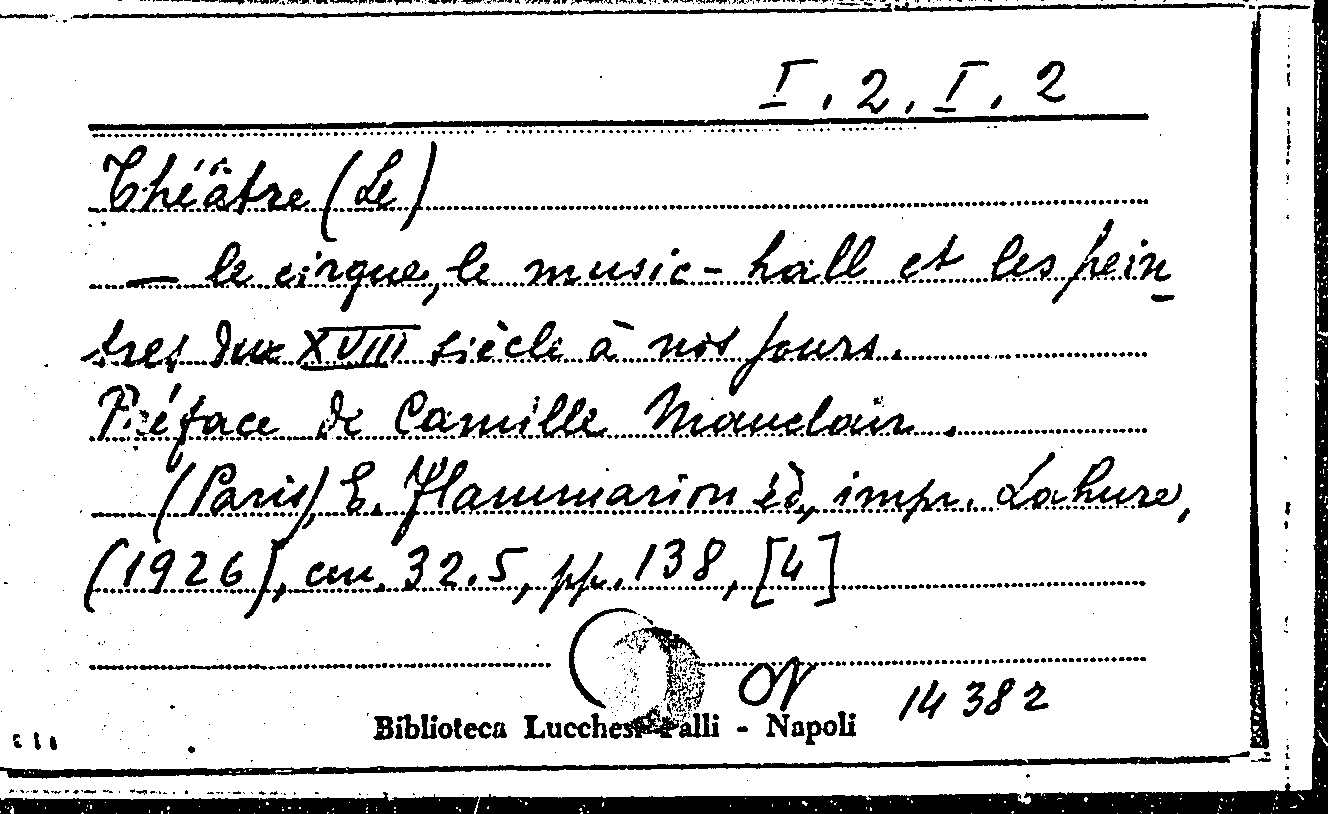 I. 2. I. 2
Théâtre (Le)
— le cirque, le music-hall et les pein
tres du XVIII siècle à nos jours.
Préface de Camille Mauclair.
(Paris), E. Flammarion éd., impr. Lahure,
(1926), cm. 32.5, pp. 138, [4]
ON 14382
Biblioteca Lucchesi Palli - Napoli